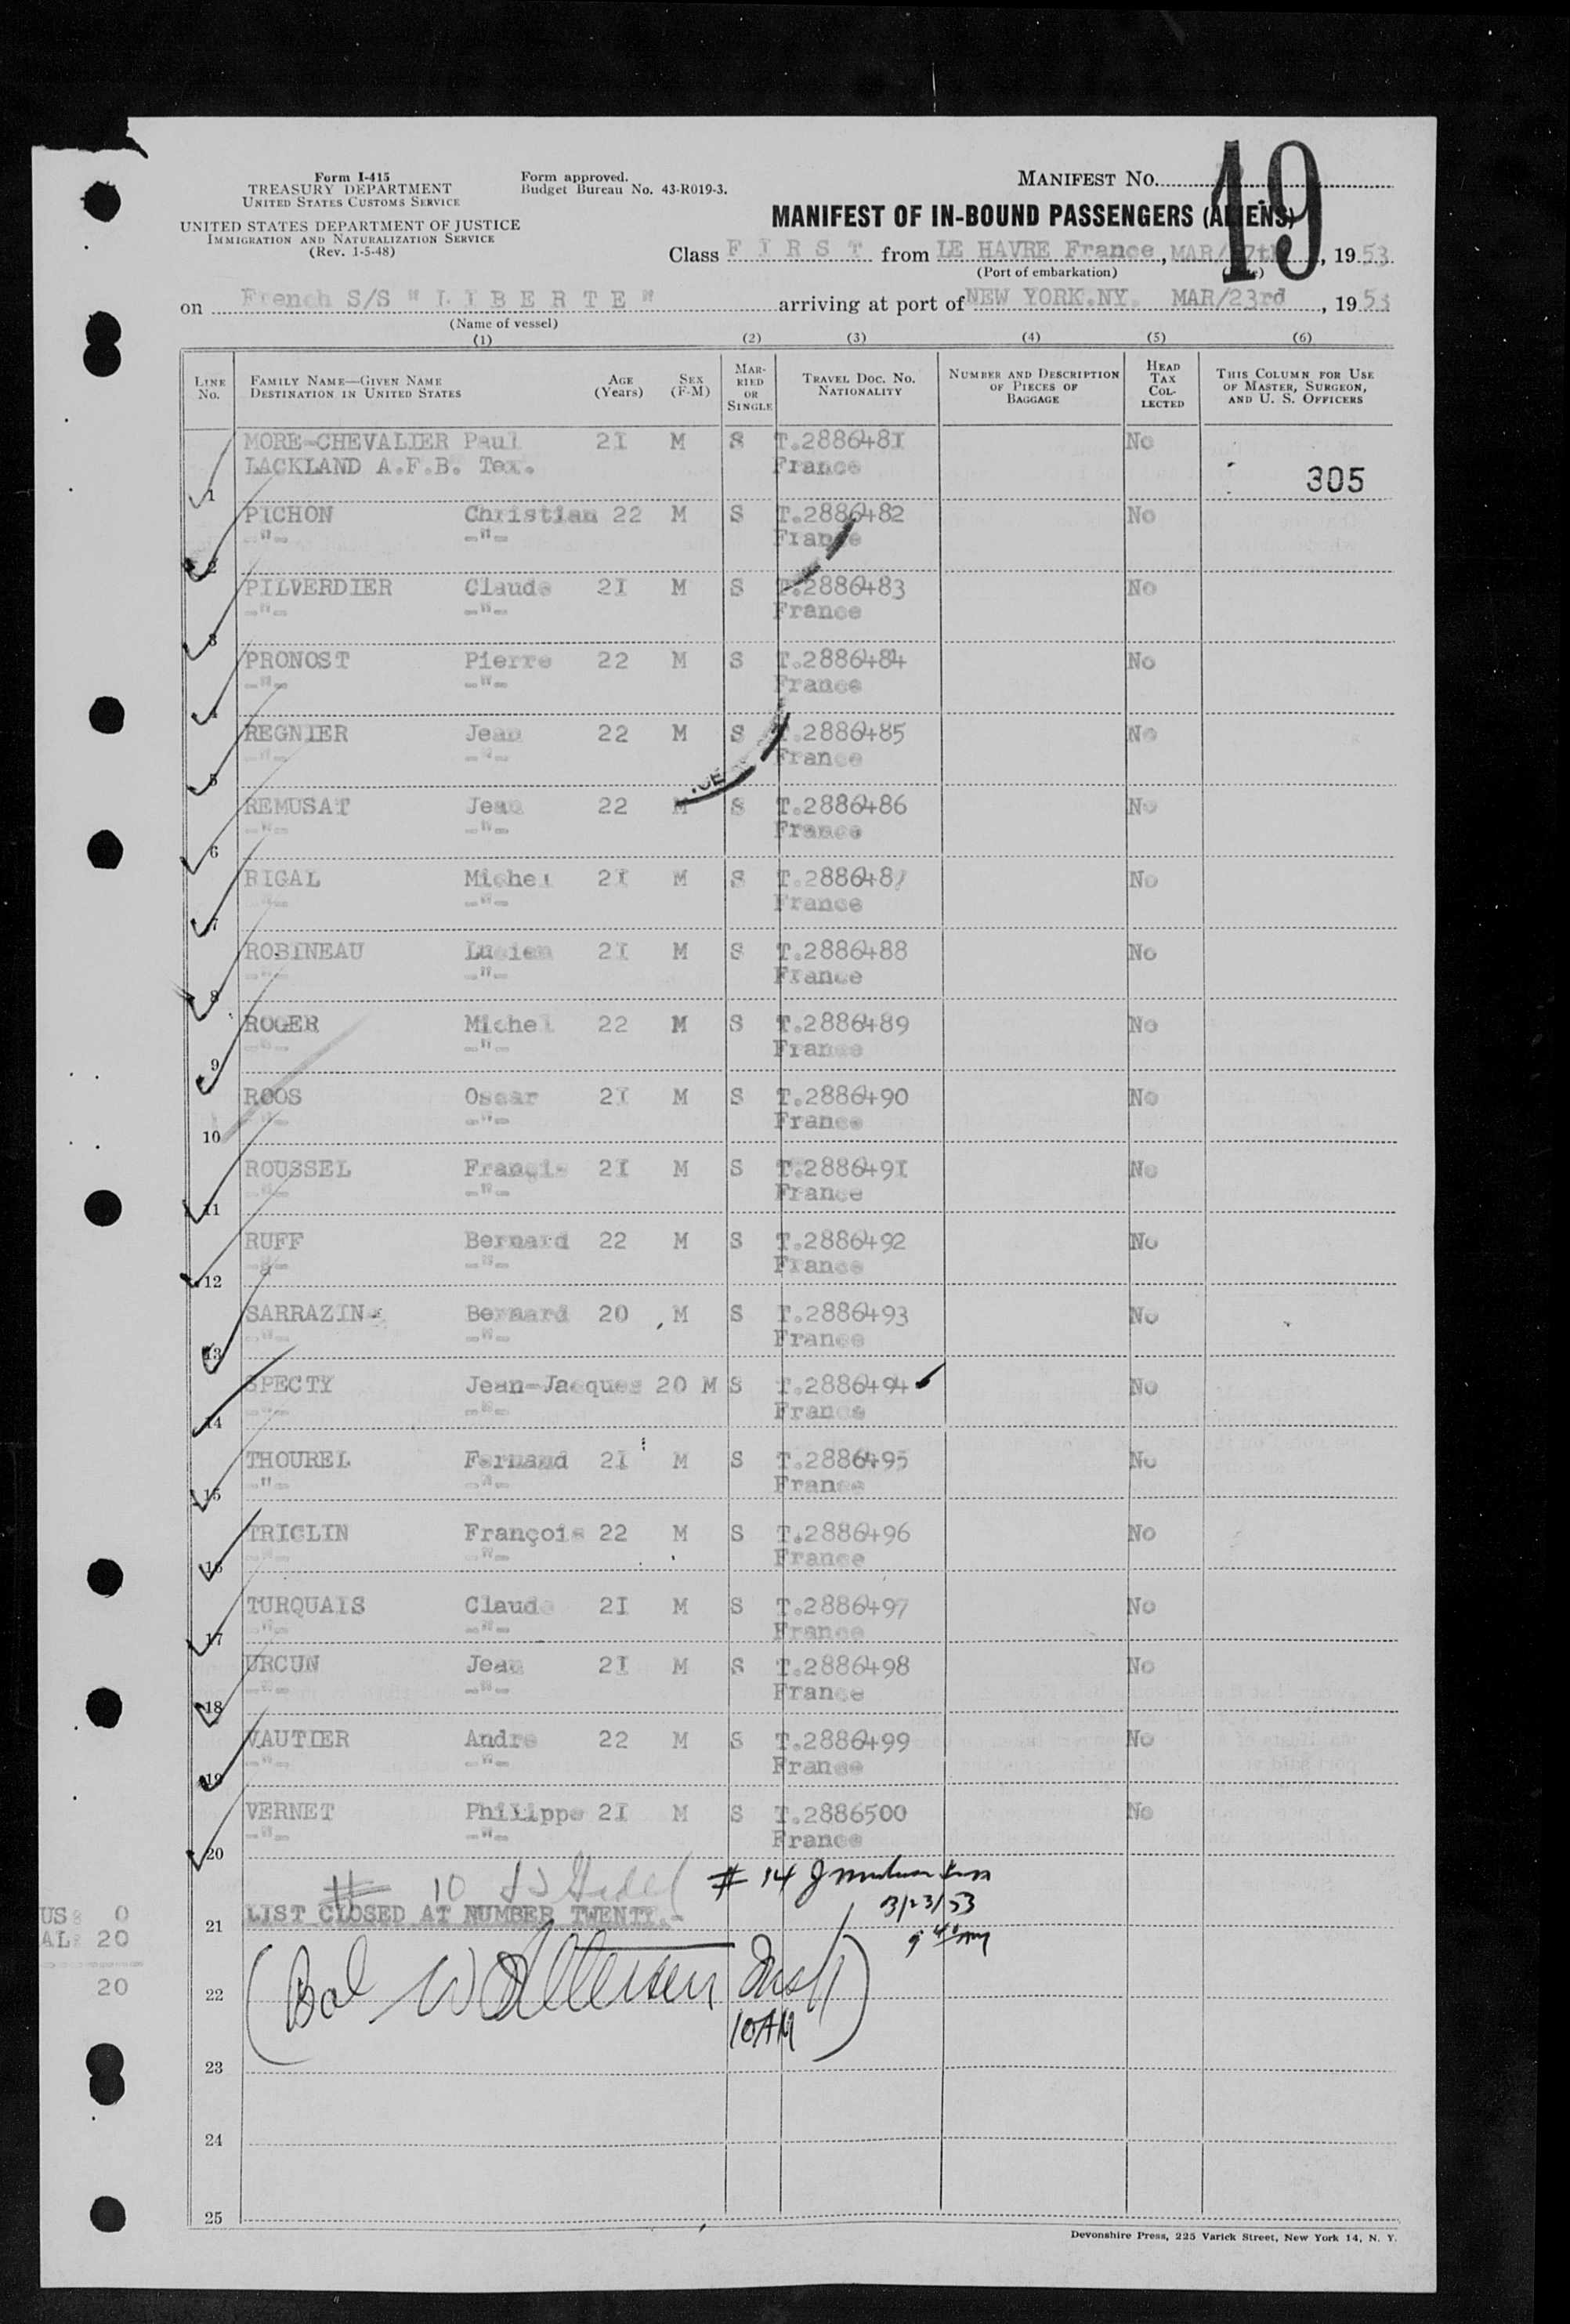 Form I-415
TREASURY DEPARTMENT
UNITED STATES CUSTOMS SERVICE
UNITED STATES DEPARTMENT OF JUSTICE
IMMIGRATION AND NATURALIZATION SERVICE
(Rev. 1-5-48)
Form approved.
Budget Bureau No. 43-R019-3.
MANIFEST NO.
19
MANIFEST OF IN-BOUND PASSENGERS (ALIENS)
Class F I R S T from LE HAVRE France, MAR/17th, 1953
(Port of embarkation)
on French S/S "L I B E R T E" arriving at port of NEW YORK.NY. MAR/23rd, 1953
(Name of vessel)
(1) (2) (3) (4) (5) (6)
LINE No. FAMILY NAME—GIVEN NAME DESTINATION IN UNITED STATES AGE (Years) SEX (F-M) MARRIED OR SINGLE TRAVEL DOC. NO. NATIONALITY NUMBER AND DESCRIPTION OF PIECES OF BAGGAGE HEAD TAX COLLECTED THIS COLUMN FOR USE OF MASTER, SURGEON, AND U. S. OFFICERS
MORE-CHEVALIER Paul 2I M S T.288648I No
LACKLAND A.F.B. Tex. France
1 305
PICHON Christian 22 M S T.2886482 No
-"- -"- France
2
PILVERDIER Claude 2I M S T.2886483 No
-"- -"- France
3
PRONOST Pierre 22 M S T.2886484 No
-"- -"- France
4
REGNIER Jean 22 M S T.2886485 No
-"- -"- France
5
REMUSAT Jean 22 M S T.2886486 No
-"- -"- France
6
RIGAL Michel 2I M S T.2886487 No
-"- -"- France
7
ROBINEAU Lucien 2I M S T.2886488 No
-"- -"- France
8
ROGER Michel 22 M S T.2886489 No
-"- -"- France
9
ROOS Oscar 2I M S T.2886490 No
-"- -"- France
10
ROUSSEL Francis 2I M S T.288649I No
-"- -"- France
11
RUFF Bernard 22 M S T.2886492 No
-"- -"- France
12
SARRAZIN Bernard 20 M S T.2886493 No
-"- -"- France
13
SPECTY Jean-Jacques 20 M S T.2886494 No
-"- -"- France
14
THOUREL Fernand 2I M S T.2886495 No
-"- -"- France
15
TRICLIN François 22 M S T.2886496 No
-"- -"- France
16
TURQUAIS Claude 2I M S T.2886497 No
-"- -"- France
17
URCUN Jean 2I M S T.2886498 No
-"- -"- France
18
VAUTIER Andre 22 M S T.2886499 No
-"- -"- France
19
VERNET Philippe 2I M S T.2886500 No
-"- -"- France
20
# 10 # 14
3/23/53
US: 0
21 LIST CLOSED AT NUMBER TWENTY.-
AL: 20
20
22
10AM
23
24
25
Devonshire Press, 225 Varick Street, New York 14, N. Y.